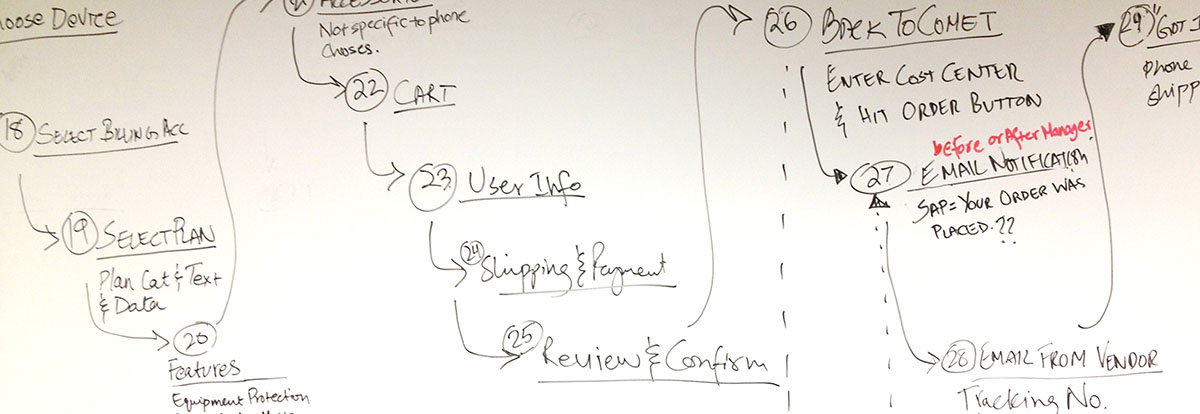 oose Device
18 SELECT BILLING ACC
19 SELECT PLAN
Plan Cat & Text
& Data
20
Features
Equipment Protection
Not specific to phone
choses.
22 CART
23 User Info
24 Shipping & Payment
25 Review & Confirm
26 BACK TO COMET
ENTER COST CENTER
& HIT ORDER BUTTON
before or After Manager
27 EMAIL NOTIFICATION
SAP = YOUR ORDER WAS
PLACED.??
28 EMAIL FROM VENDOR
Tracking No.
29 GOT I
Phone
Shipp